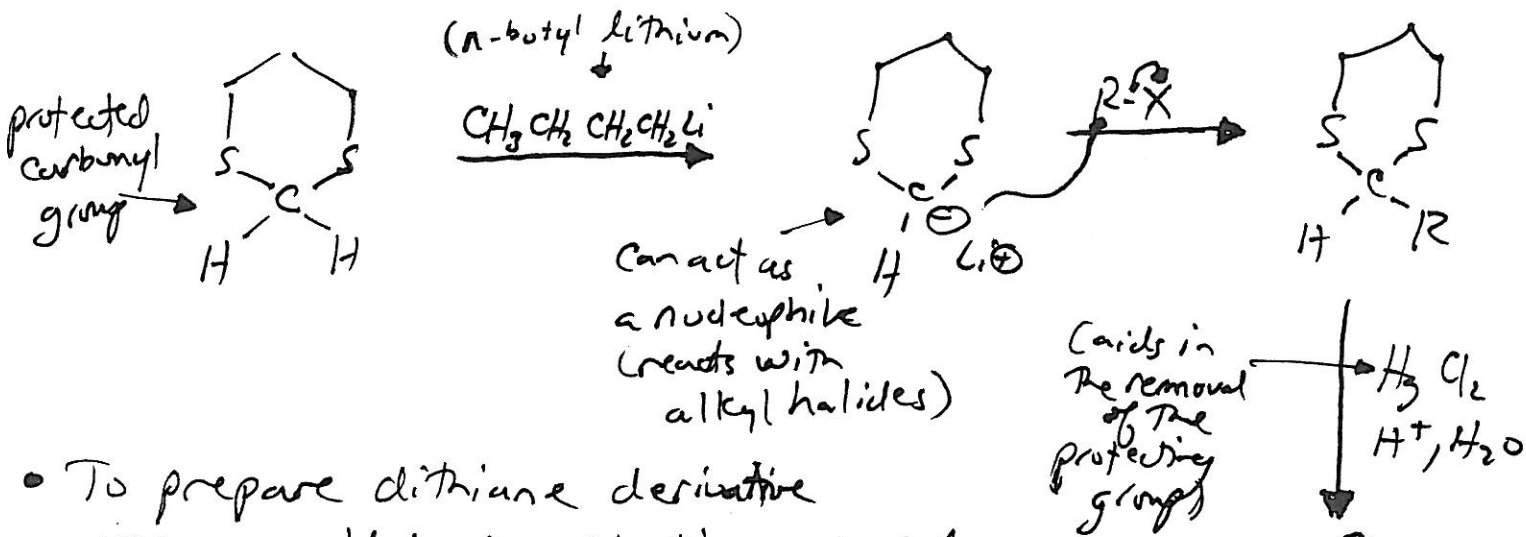 (n-butyl lithium)
protected
carbonyl
group
CH3CH2CH2CH2Li
S S
C
H H
S S
C ⊖
H Li⊕
R-X
S S
C
H R
Can act as
a nucleophile
(reacts with
alkyl halides)
(aids in
the removal
of the
protecting
group)
H3 Cl2
H+, H2O
• To prepare dithiane derivative